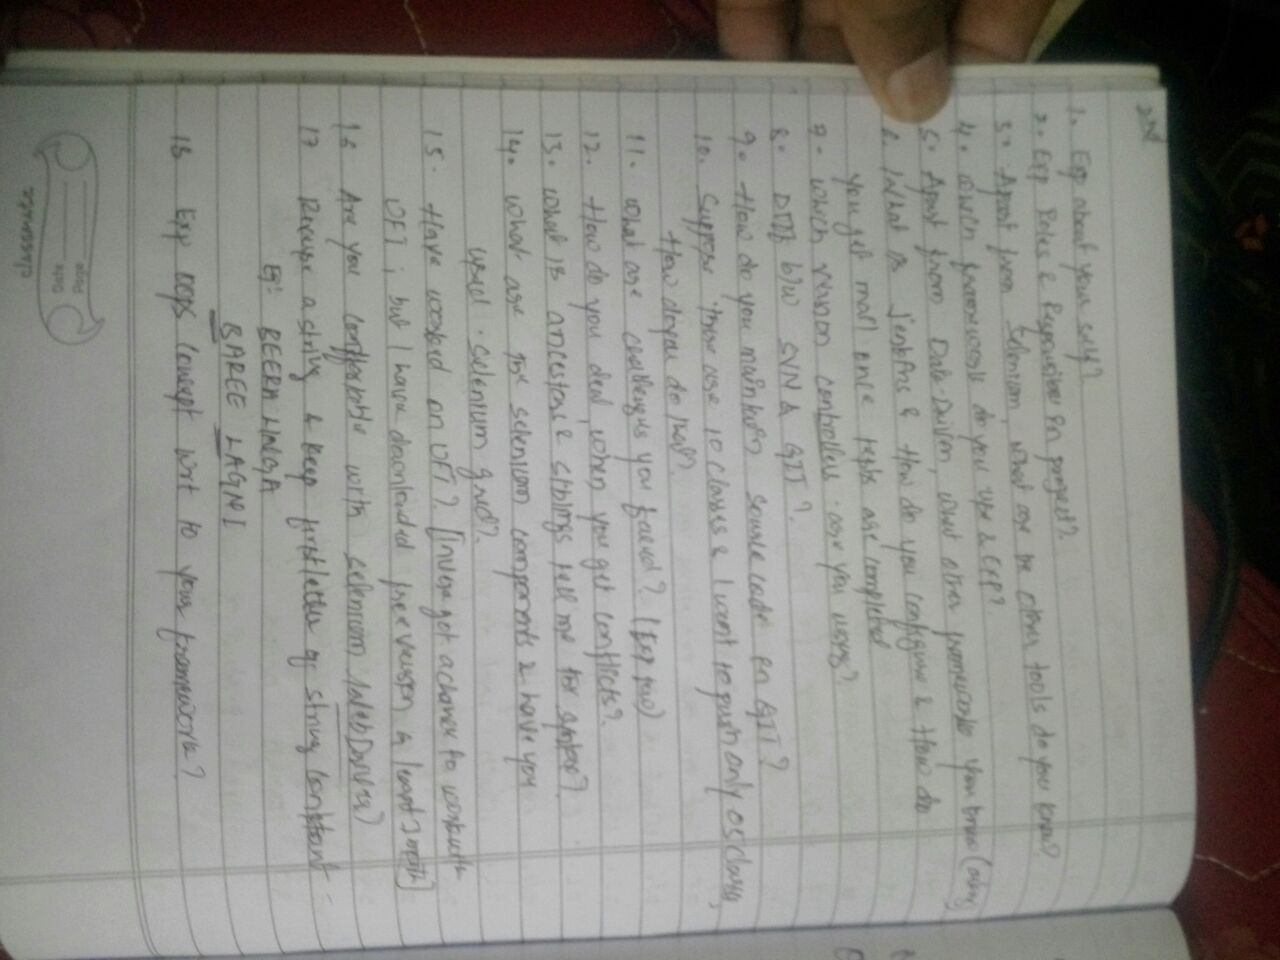 1. Exp about your self?
2. Exp Roles & Responsiblities in project?
3. Apart from Selenium, what are the other tools do you know?
4. which framework do you use & Exp?
5. Apart from Data-Driven, what other frameworks you know (any)
6. What is Jenkins & How do you configure & How do
you get mail once tests are completed
7. which version controller are you using?
8. Diff b/w SVN & GIT?
9. How do you maintain source code in GIT?
10. Suppose there are 10 classes & I want to push only 05 classes,
How do you do that?
11. What are challenges you faced? (Exp two)
12. How do you deal, when you get conflicts?
13. What is ancestors & siblings tell me the syntax?
14. What are the selenium components & have you
used selenium grid?
15. Have worked on UFT? [I never got a chance to work with
UFT, but I have downloaded version & learnt]
16 Are you comfortable with selenium /WebDriver?
17 Reverse a string & keep first letter of string constant -
Eg: BEERA LINGA
BAREE LAGNI
18 Exp OOPS concept wrt to your framework?
classmate
Date
Page